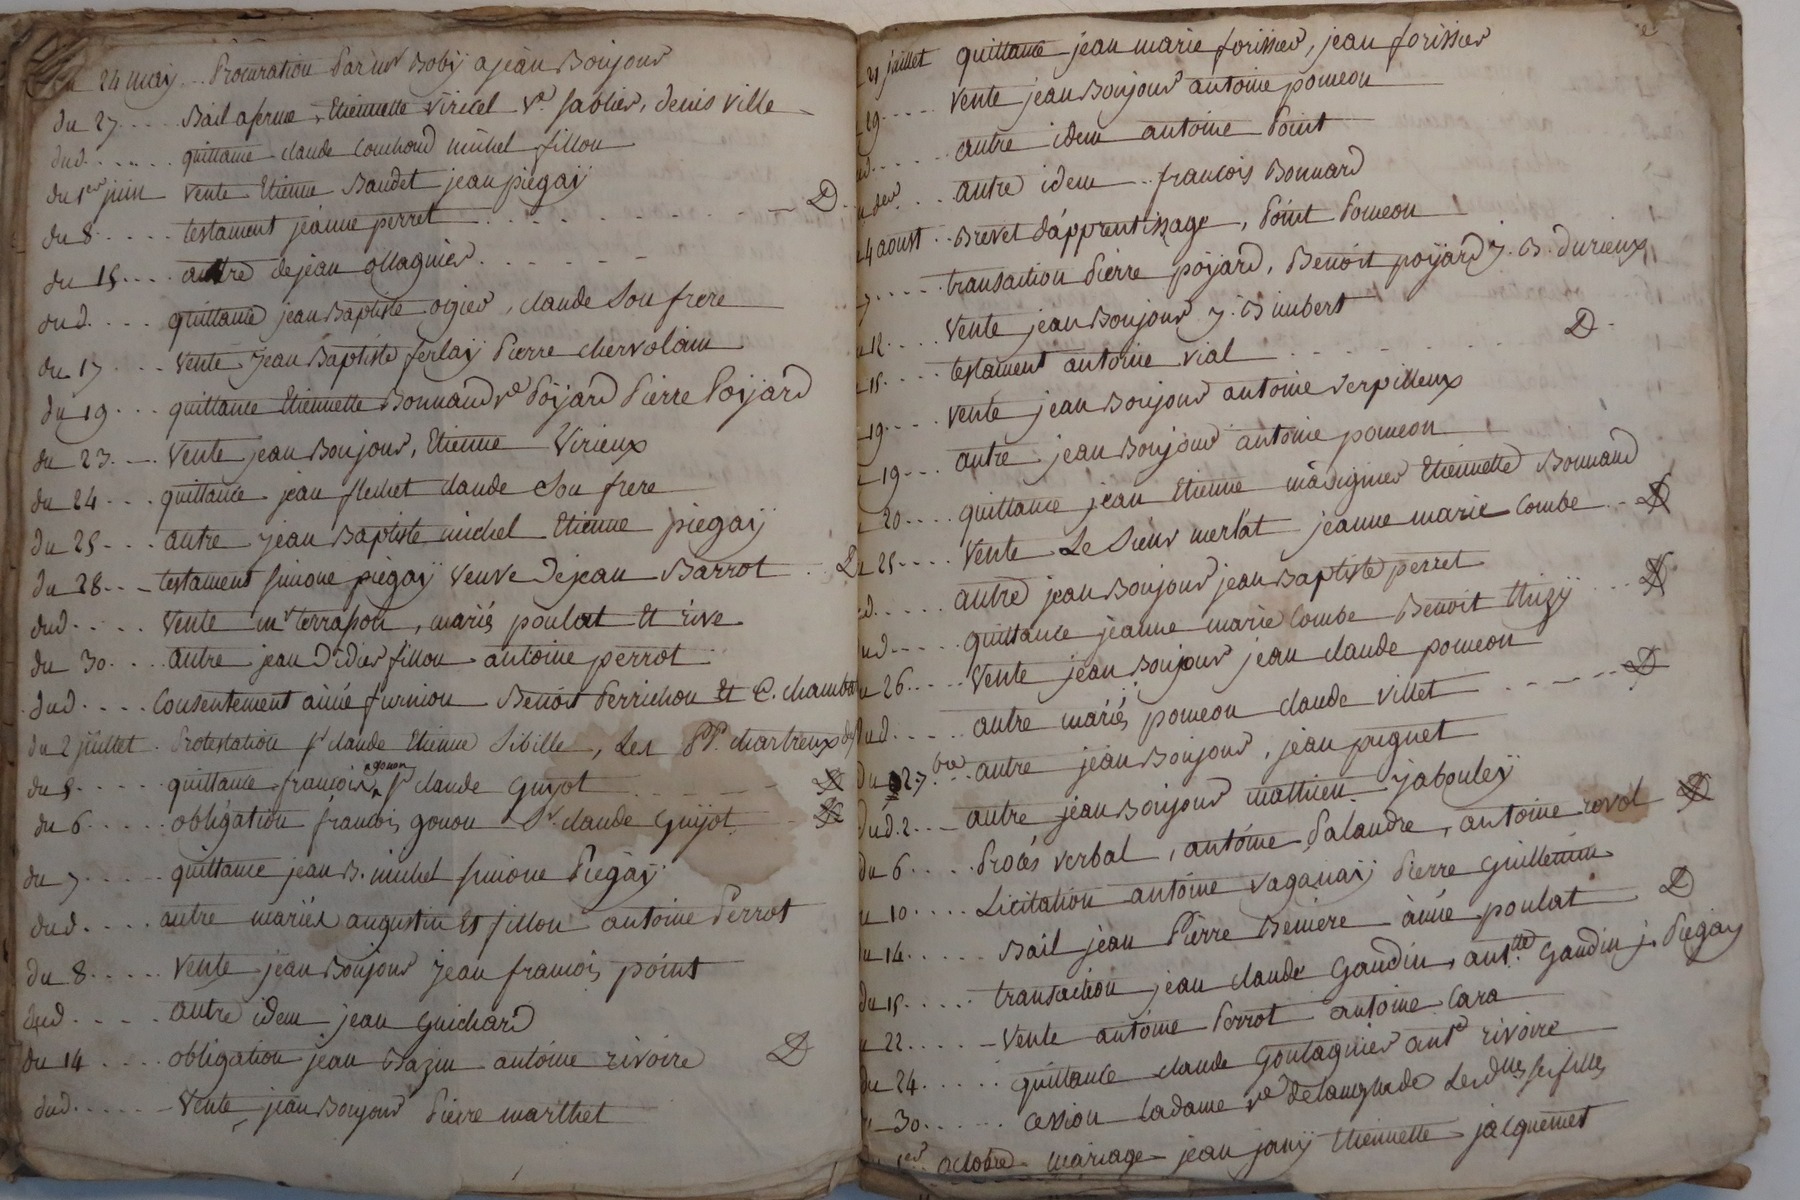 24 may .. Procuration par Boby a jean Bonjour
du 27 .... Bail aferme, Etiennette Viricel Ve sablier, denis ville
dud. ..... quittance claude couchoud michel fillon
du 1er juin vente Etienne Baudet jean piegaÿ
du 8 .... testament jeanne perret D
du 15 ... autre de jean ollagnier
dud. .... quittance jean Baptiste ogier, claude son frere
du 17 ... vente jean Baptiste ferlaÿ Pierre chervolain
du 19 ... quittance Etiennette Bonnand ve Poÿard Pierre Poÿard
du 23 ... vente jean Bonjour, Etienne Virieux
du 24 ... quittance jean flechet claude son frere
du 25 ... autre jean Baptiste michel Etienne piegaÿ
du 28 ... testament simone piegaÿ veuve de jean Barrot D
dud. .... vente mr terrasson, mariés poulat et rive
du 30 .... autre jean Didier fillon antoine perrot
dud .... Consentement Benoit Perrichon et C. chambe
du 2 juillet . Protestation sr claude Etienne Sibille, Les PP. chartreux
du 5 ..... quittance francois gonon sr claude Guÿot D
du 6 ..... obligation francois gonon Sr. claude Guÿot D
du 7 ..... quittance jean B. michel simone Piegaÿ
dud. .... autre mariés augustin et fillon antoine Perrot
du 8 ..... vente jean Bonjour jean francois point
dud .... autre idem jean Guichard
du 14 .... obligation jean Bazin antoine rivoire D
dud ...... vente jean Bonjour Pierre marthet
21 juillet quittance jean marie forissier, jean forissier
29 .... vente jean Bonjour antoine pomeon
d ..... autre idem antoine Point
der ... autre idem .. francois Bonnard
4 aoust .. Brevet dápprentissage, Point Pomeon
7 ..... transaction Pierre poÿard, Benoit poÿard J. B. durieux
12 .... vente jean Bonjour J. B imbert
15 .... testament antoine vial D
19 .... vente jean Bonjour antoine verpilleux
19 ... autre jean Bonjour antoine pomeon
20 .... quittance jean Etienne Etiennette Bonnand
25 .... vente Le Sieur merlat jeanne marie Combe D
d ..... autre jean Bonjour jean Baptiste perret
ud ..... quittance jeanne marie Combe Benoit thizÿ D
26 .... vente jean Bonjour jean claude pomeon
ud .... autre mariés pomeon claude villet D
du 27 ... autre jean Bonjour, jean puignet
dud. 2 ... autre jean Bonjour mathieu jabouleÿ
du 6 .... Procés verbal, antoine Palandre, antoine revol D
10 .... Licitation antoine vaganaÿ Pierre Guillemin
14 ..... Bail jean Pierre Beniere poulat D
du 15 ..... transaction jean claude Gaudin, anttte Gaudin j. Piegaÿ
22 ..... vente antoine Perrot antoine Cara
du 24 ..... quittance claude Goutagnier ant rivoire
30 ..... cession Ladame ve delanglade Les dlles ses filles
1er octobre mariage jean janÿ Etiennette jacquemet